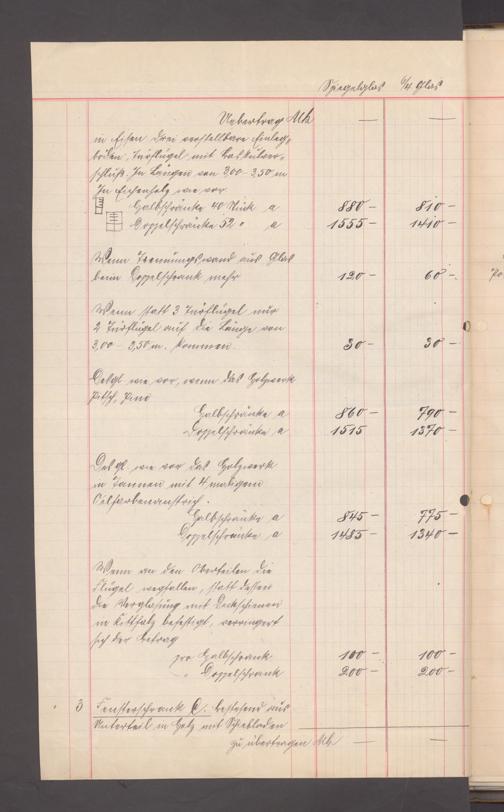 Spiegelglas 6/4 Glas
Uebertrag Mk — —
in Eisen drei verstellbare Einleg-
böden, Türflügel mit Baskülver-
schluß. In Längen von 3,00 - 3,50 m
In Eichenholz wie vor
Halbschränke 40 Stück a 880 – 810 –
Doppelschränke 52 " a 1555 – 1410 –
Wenn Trennungswand aus Glas
beim Doppelschrank mehr 120 – 60 –
Wenn statt 3 Türflügel nur
2 Türflügel auf die Länge von
3,00 - 3,50 m. kommen 30 – 30 –
Desgl. wie vor, wenn das Holzwerk
Pitsch-pine
Halbschränke a 860 – 790 –
Doppelschränke a 1515 1370 –
Desgl. wie vor das Holzwerk
in Tannen mit 4 maligem
Oelfarbenanstrich.
Halbschränke a 845 – 775 –
Doppelschränke a 1485 – 1340 –
Wenn an den Oberteilen die
Flügel wegfallen, statt dessen
die Verglasung mit Deckschienen
in Kittfalz befestigt, verringert
sich der Betrag
pro Halbschrank 100 – 100 –
" Doppelschrank 200 – 200 –
3 Fensterschrank C. bestehend aus
Unterteil in Holz mit Schiebladen
zu übertragen Mk. — —